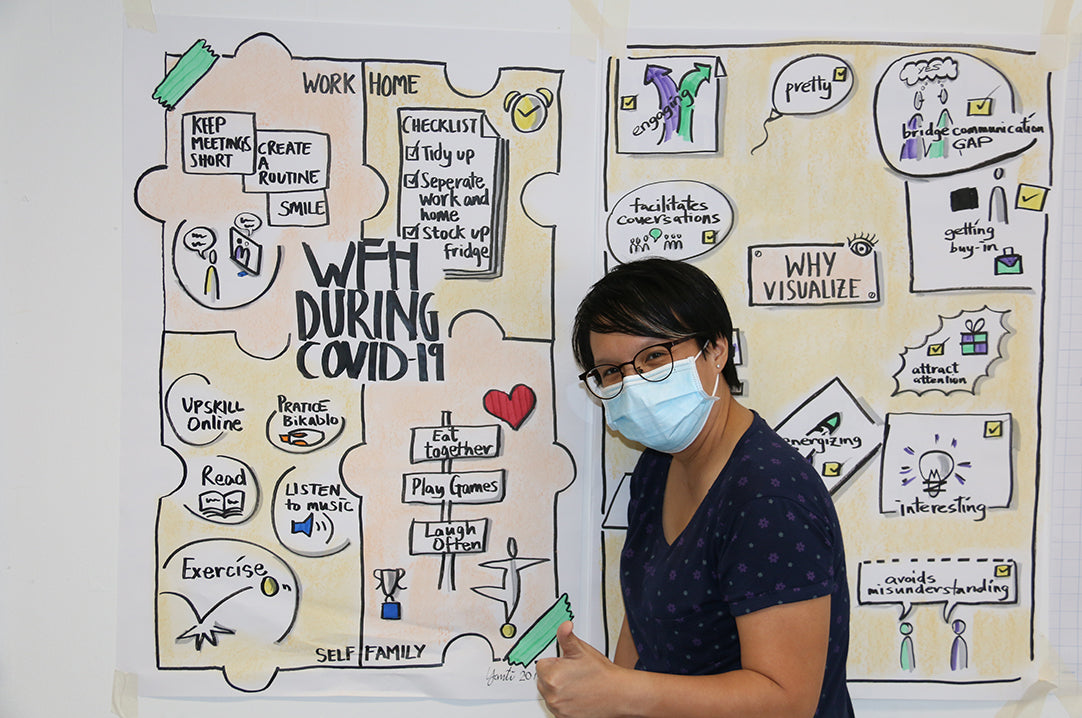 WORK
HOME
KEEP
MEETINGS
SHORT
CREATE
A
ROUTINE
SMILE
CHECKLIST
Tidy up
Seperate
work and
home
Stock up
fridge
WFH
DURING
COVID-19
UPSKILL
Online
PRATICE
BIKABLO
Read
LISTEN
to music
Exercise
Eat
together
Play Games
Laugh
Often
SELF
FAMILY
engaging
pretty
YES
bridge communication
GAP
facilitates
coversations
getting
buy-in
WHY
VISUALIZE
attract
attention
energizing
interesting
avoids
misunderstanding